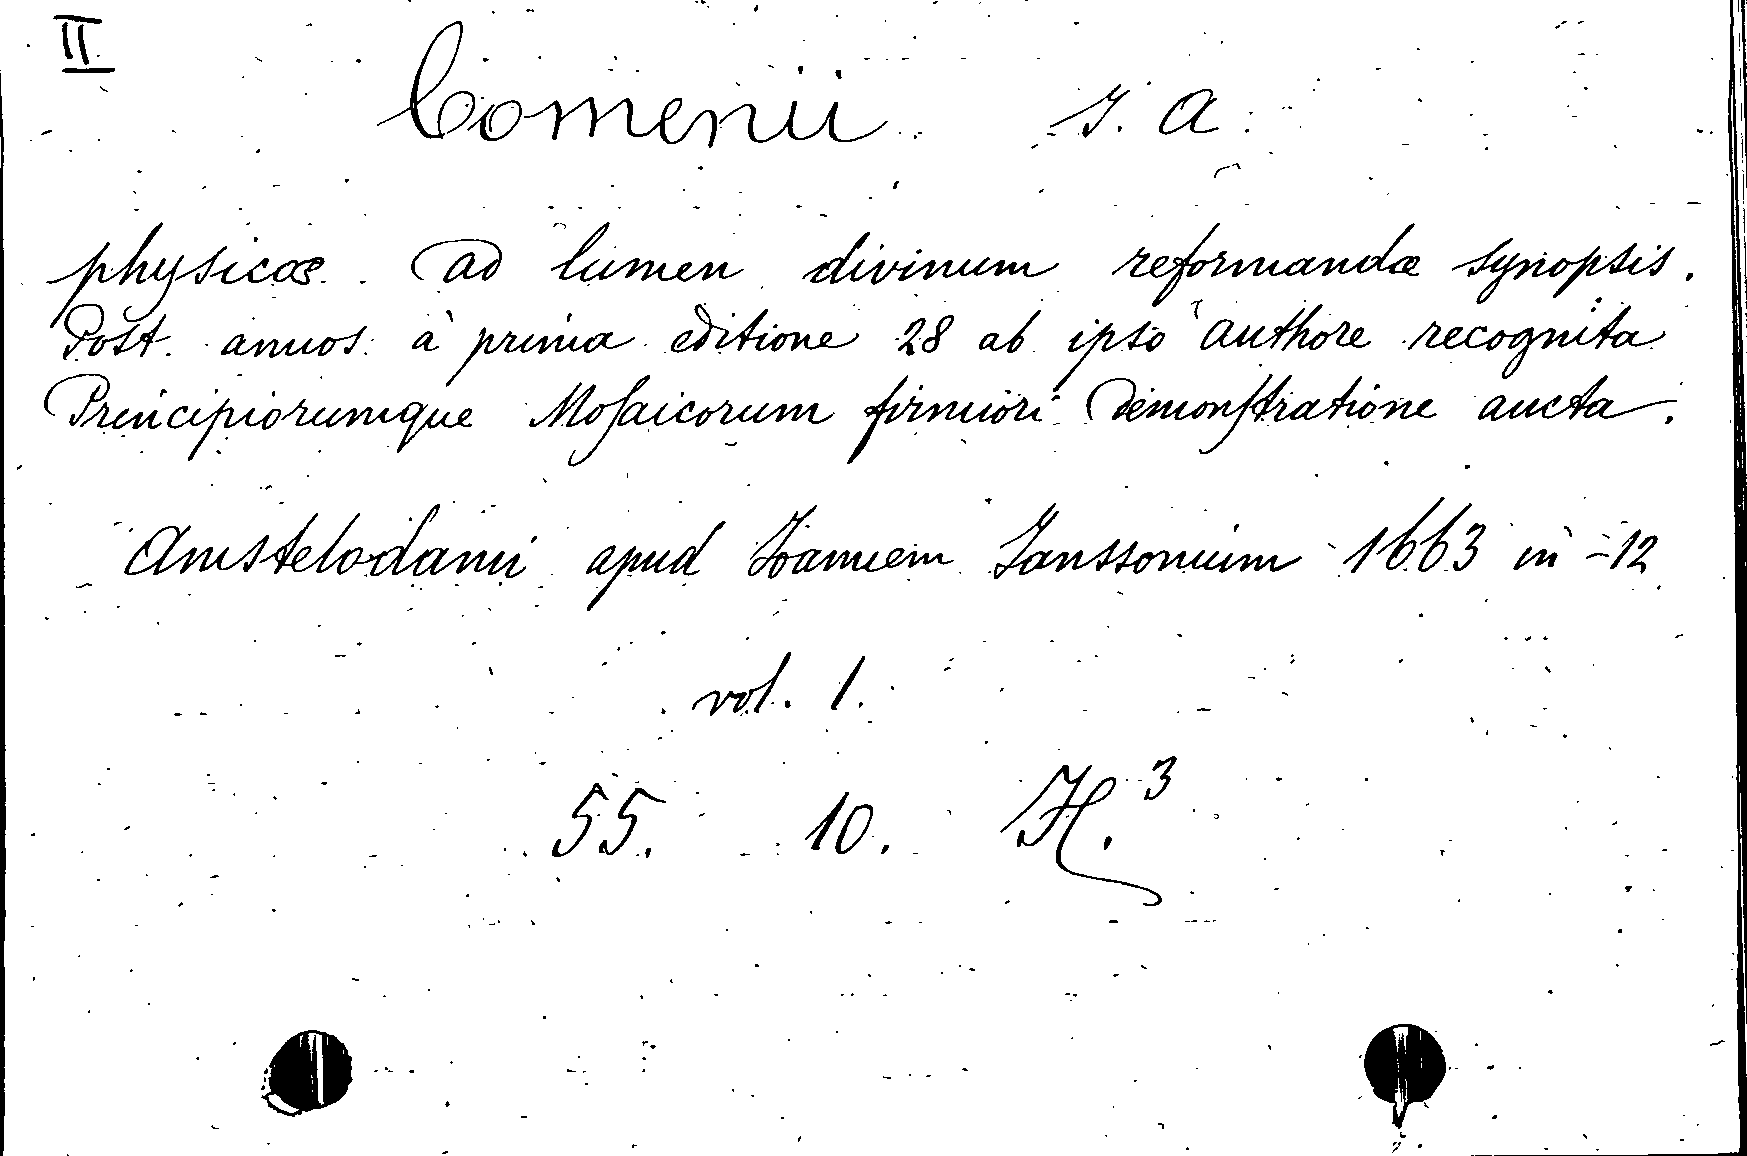 II
Comenii J. A.
physicæ ad lumen divinum reformandæ synopsis.
Post annos à prima editione 28 ab ipso authore recognita
Principiorumque Moſaicorum firmiori demonſtratione aucta.
Amstelodami apud Joannem Janssonium 1663 in -12
vol. 1.
55. 10. H.³